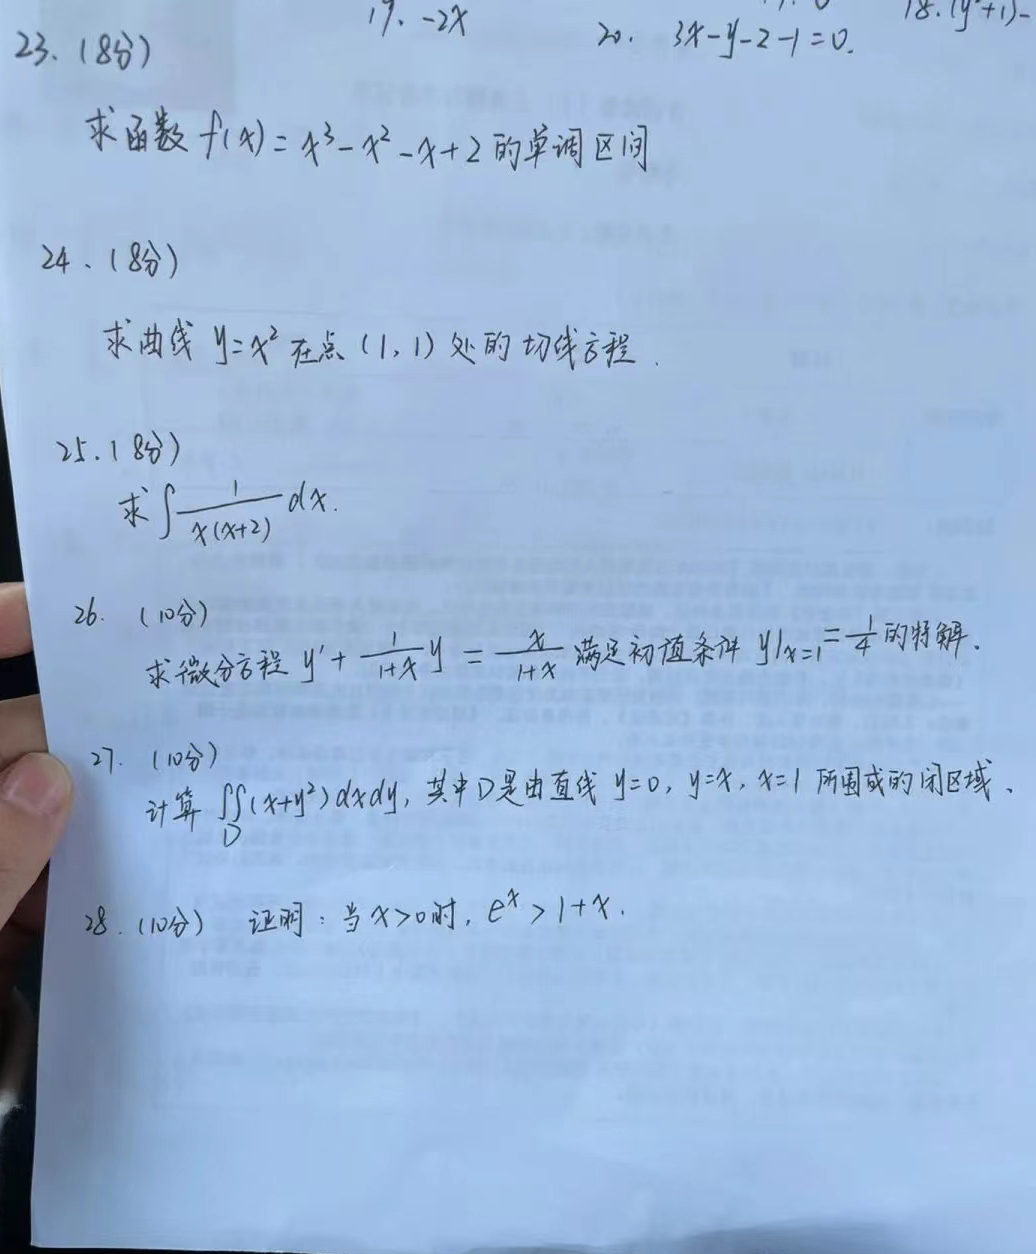 19. -2x
20. 3x-y-z-1=0.
18. (y²+1)-
23. (8分)
求函数 f(x)=x³-x²-x+2 的单调区间
24. (8分)
求曲线 y=x² 在点 (1,1) 处的切线方程.
25. (8分)
求 ∫ 1/(x(x+2)) dx.
26. (10分)
求微分方程 y' + 1/(1+x) y = x/(1+x) 满足初值条件 y|x=1 = 1/4 的特解.
27. (10分)
计算 ∬D (x+y²)dxdy, 其中D是由直线 y=0, y=x, x=1 所围成的闭区域.
28. (10分) 证明: 当 x>0时, eˣ > 1+x.